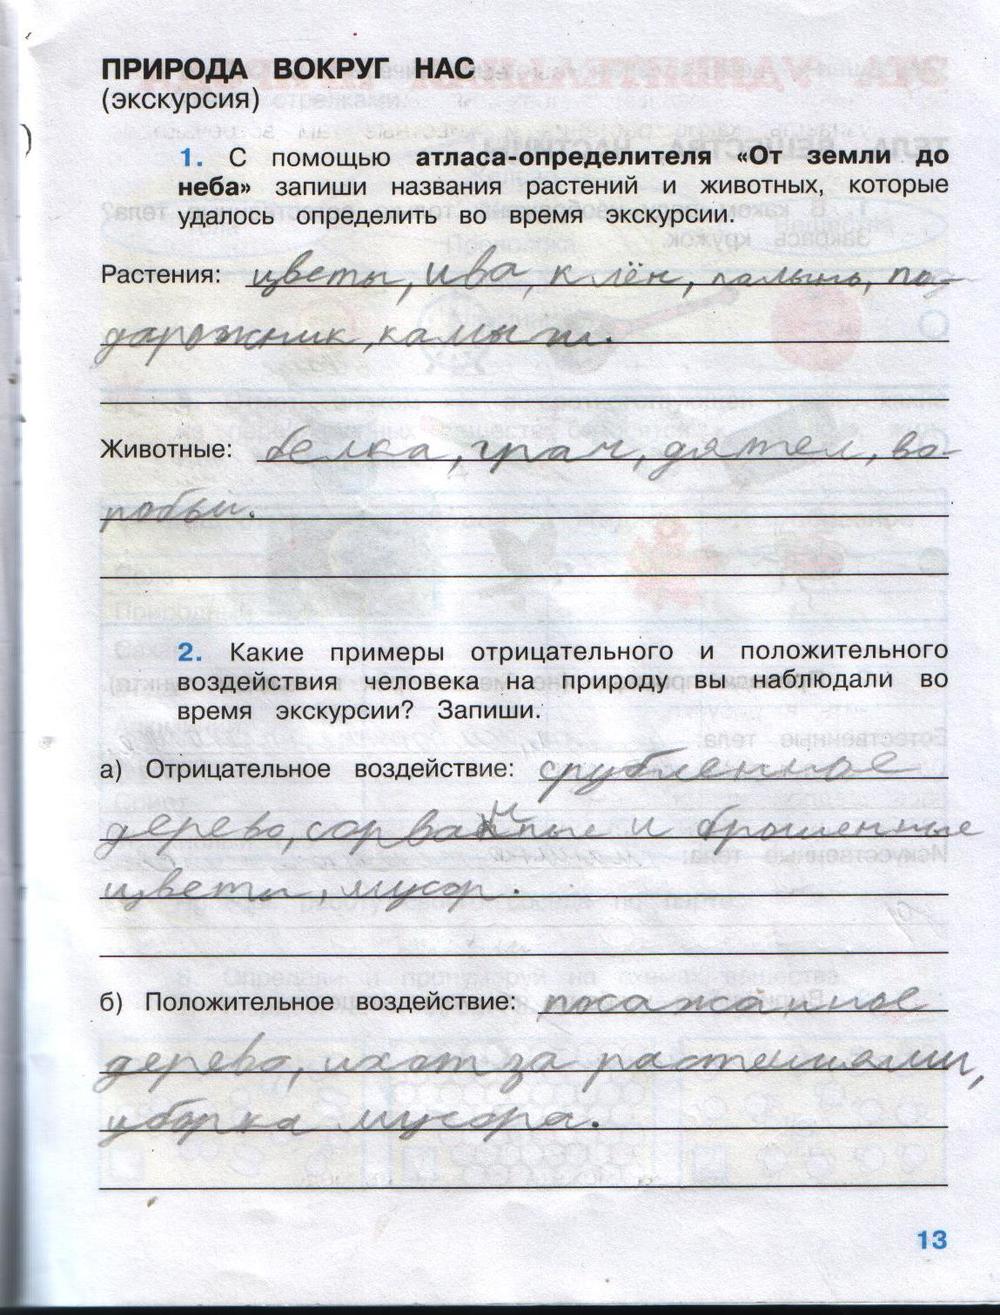 ПРИРОДА ВОКРУГ НАС
(экскурсия)
1. С помощью атласа-определителя «От земли до
неба» запиши названия растений и животных, которые
удалось определить во время экскурсии.
Растения: цветы, ива, клён, палынь, по-
дарожник, камыш.
Животные: белка, грач, дятел, во-
робьи.
2. Какие примеры отрицательного и положительного
воздействия человека на природу вы наблюдали во
время экскурсии? Запиши.
а) Отрицательное воздействие: срубленное
дерево, сорванные и брошенные
цветы, мусор.
б) Положительное воздействие: посажанное
дерево, уход за растениями,
уборка мусора.
13